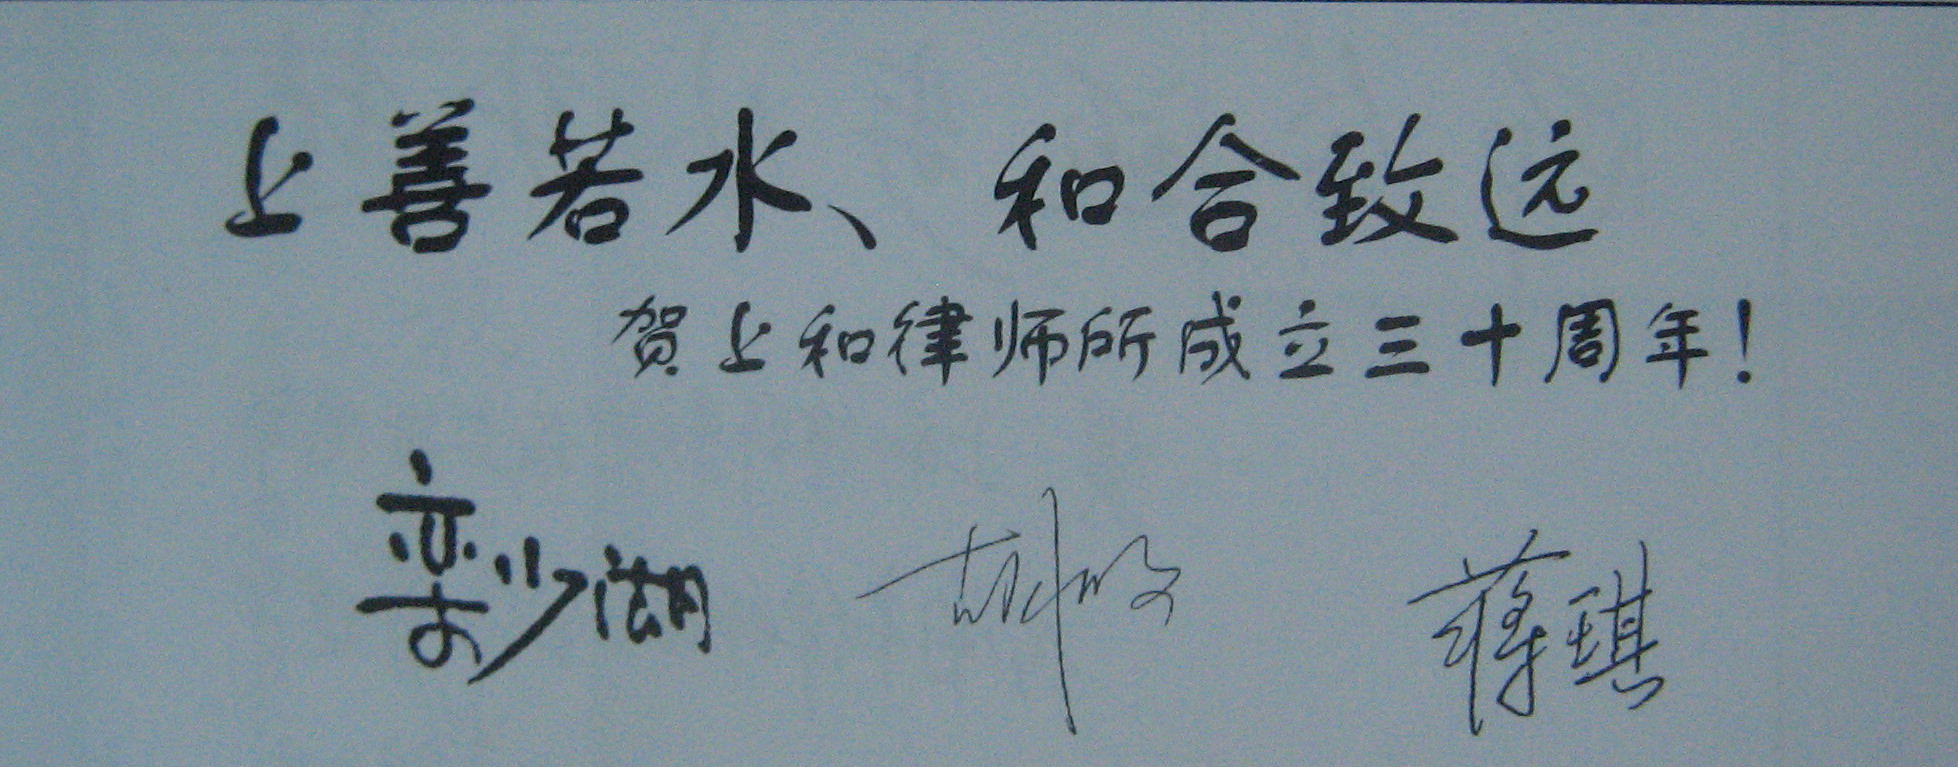 上善若水、和合致远
贺上和律师所成立三十周年!
栾少湖 蒋琪